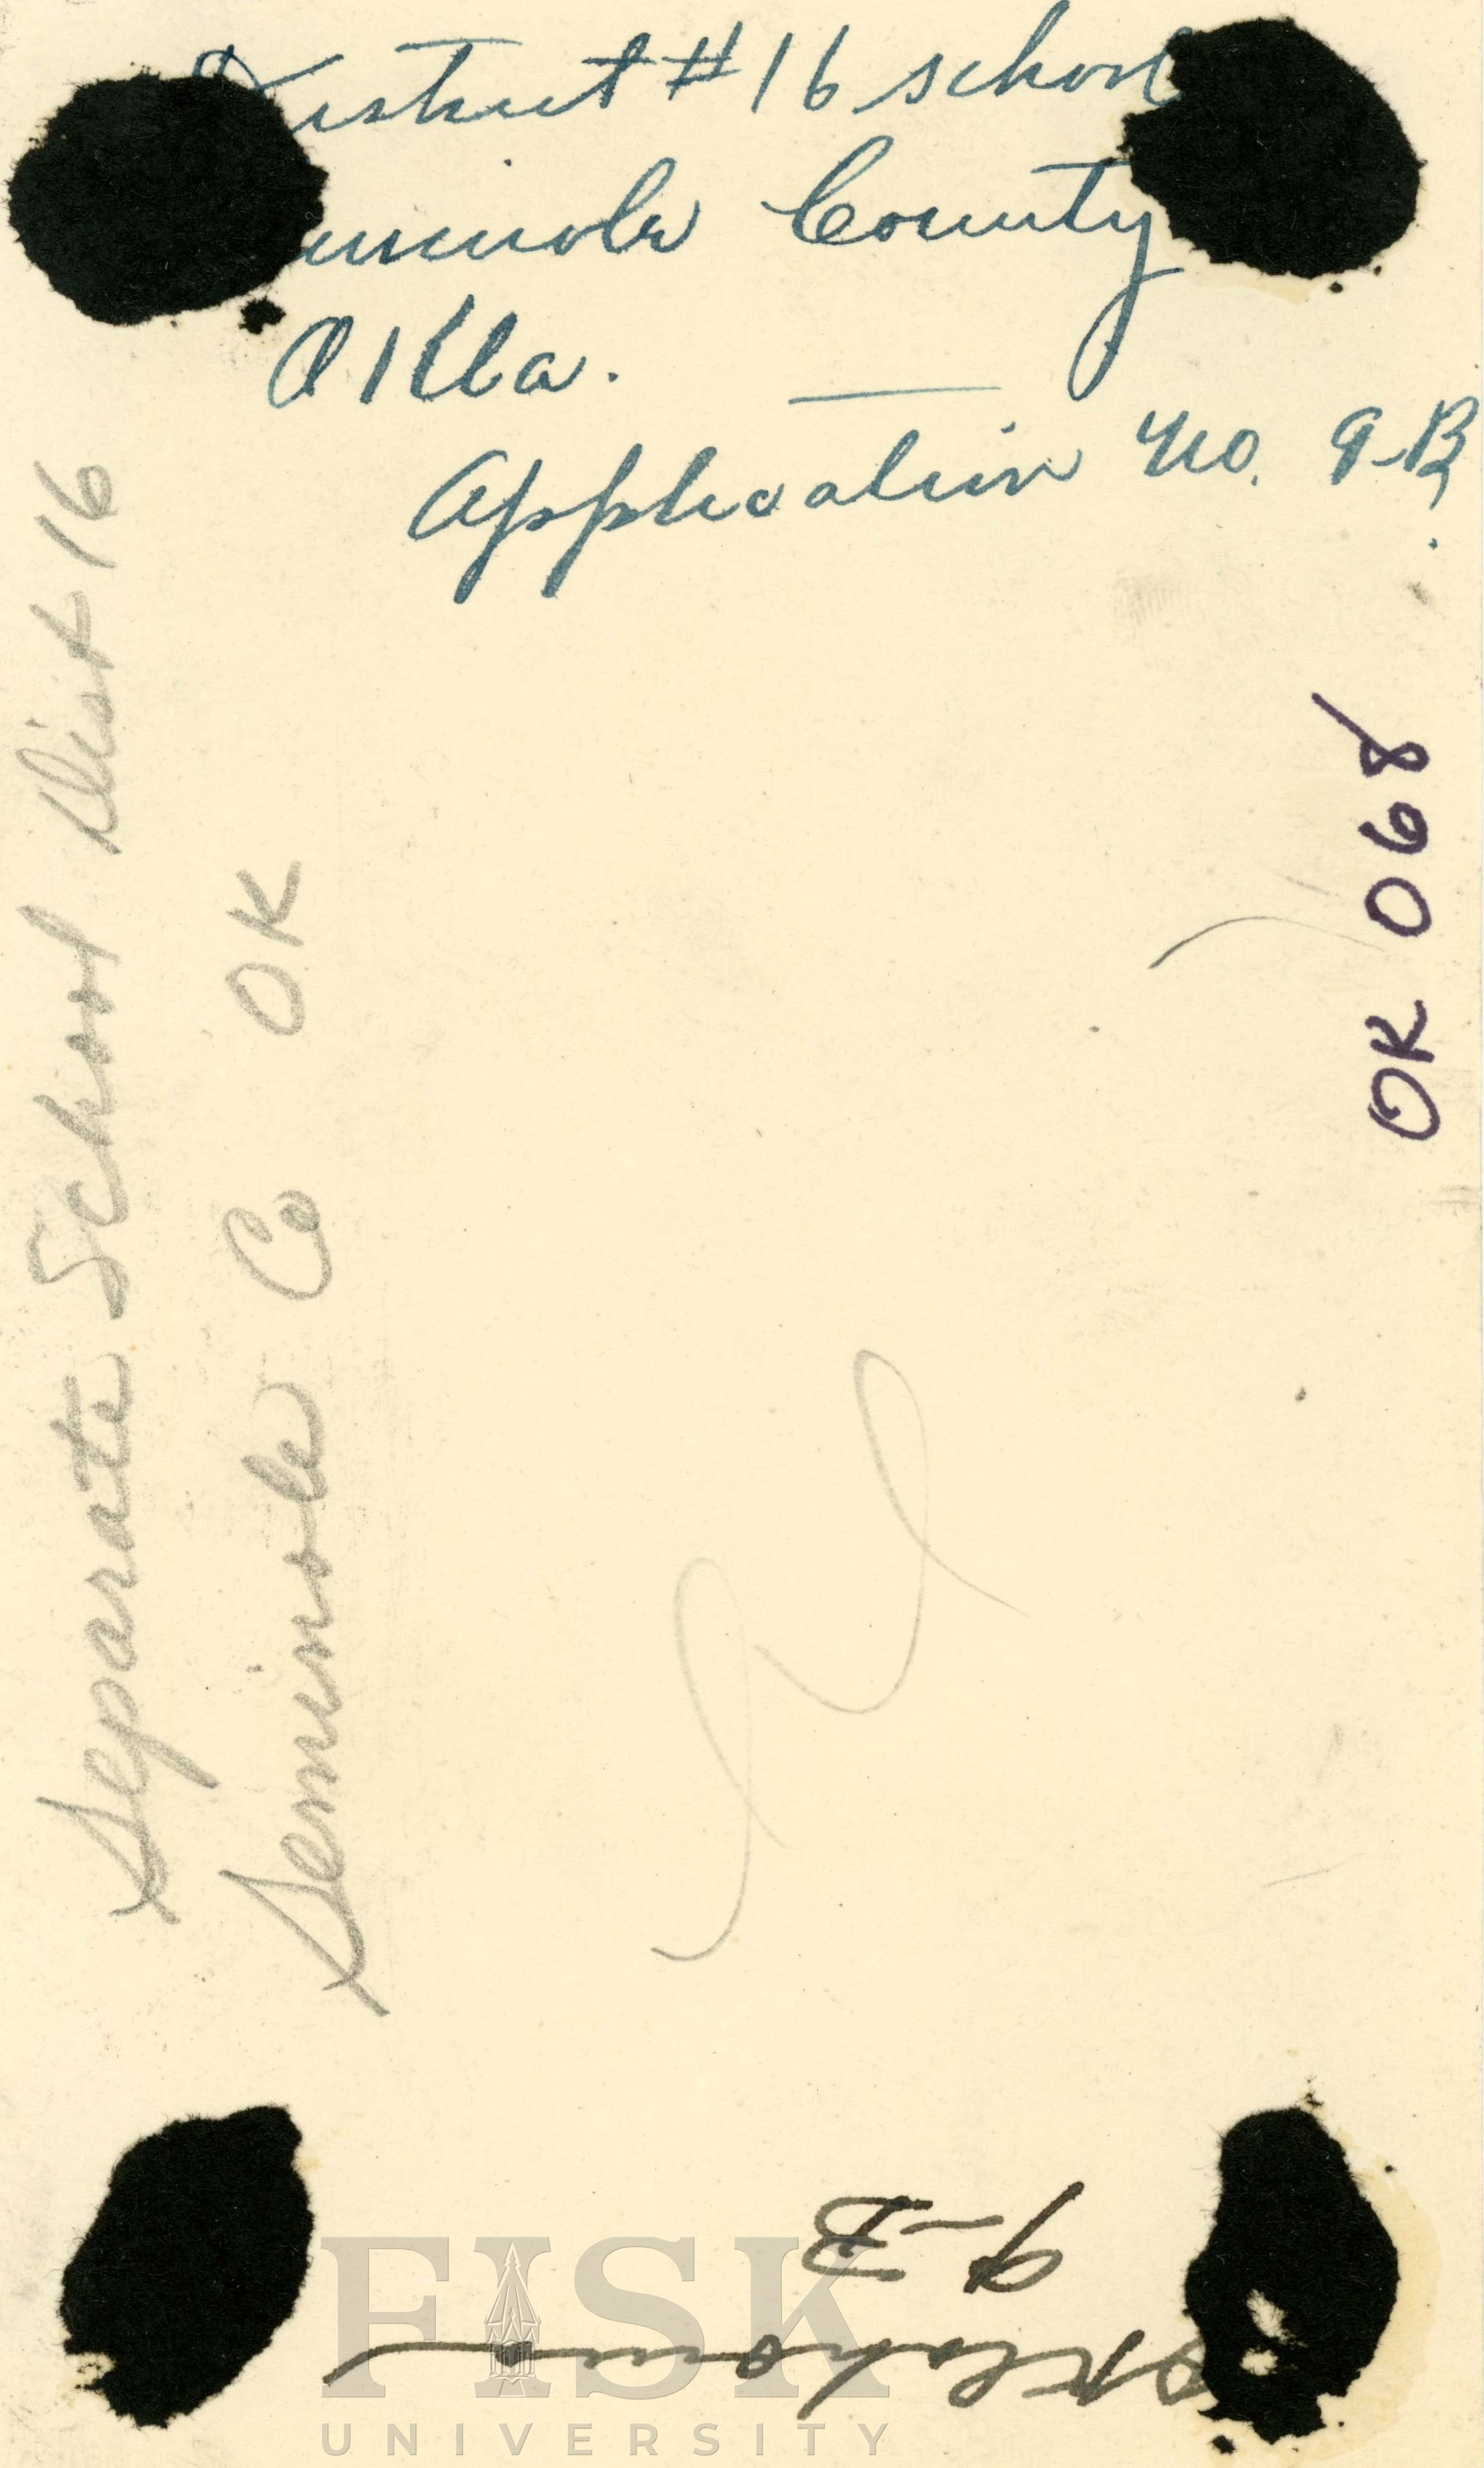 District #16 school
Seminole County
Okla.
Application No. 9-B
Separate School Dist 16
Seminole Co OK
OK 068
9-B
Oklahoma
FISK
UNIVERSITY